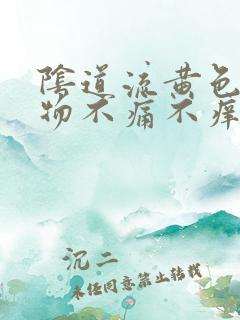 陰道流黄色
物不痛不痒
沉二
未经同意禁止转载